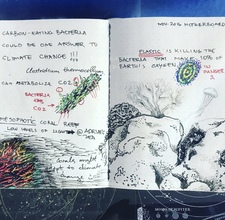 CARBON-EATING BACTERIA
COULD BE ONE ANSWER TO
CLIMATE CHANGE !!!
Clostridium thermocellum
can METABOLIZE CO2
BACTERIA
CO2
MESOPHOTIC CORAL REEF
LOW LEVELS OF LIGHT @
Corals might
adapt to climate
change
MOTHERBOARD
PLASTIC IS KILLING THE
BACTERIA THAT MAKE 10% OF
EARTH'S OXYGEN